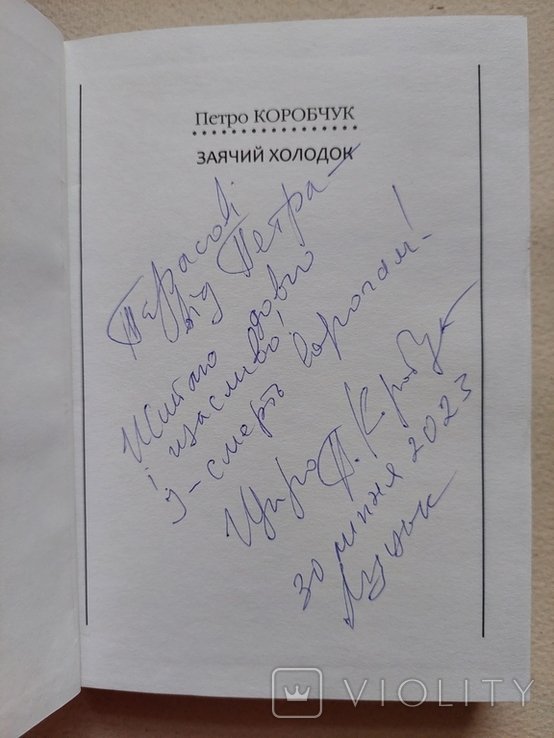 Петро КОРОБЧУК
ЗАЯЧИЙ ХОЛОДОК
Тарасові
від Петра –
Жити довго
і щасливо,
у – смерть ворогам!
Щиро П. Коробчук
30 липня 2023
Луцьк
VIOLITY